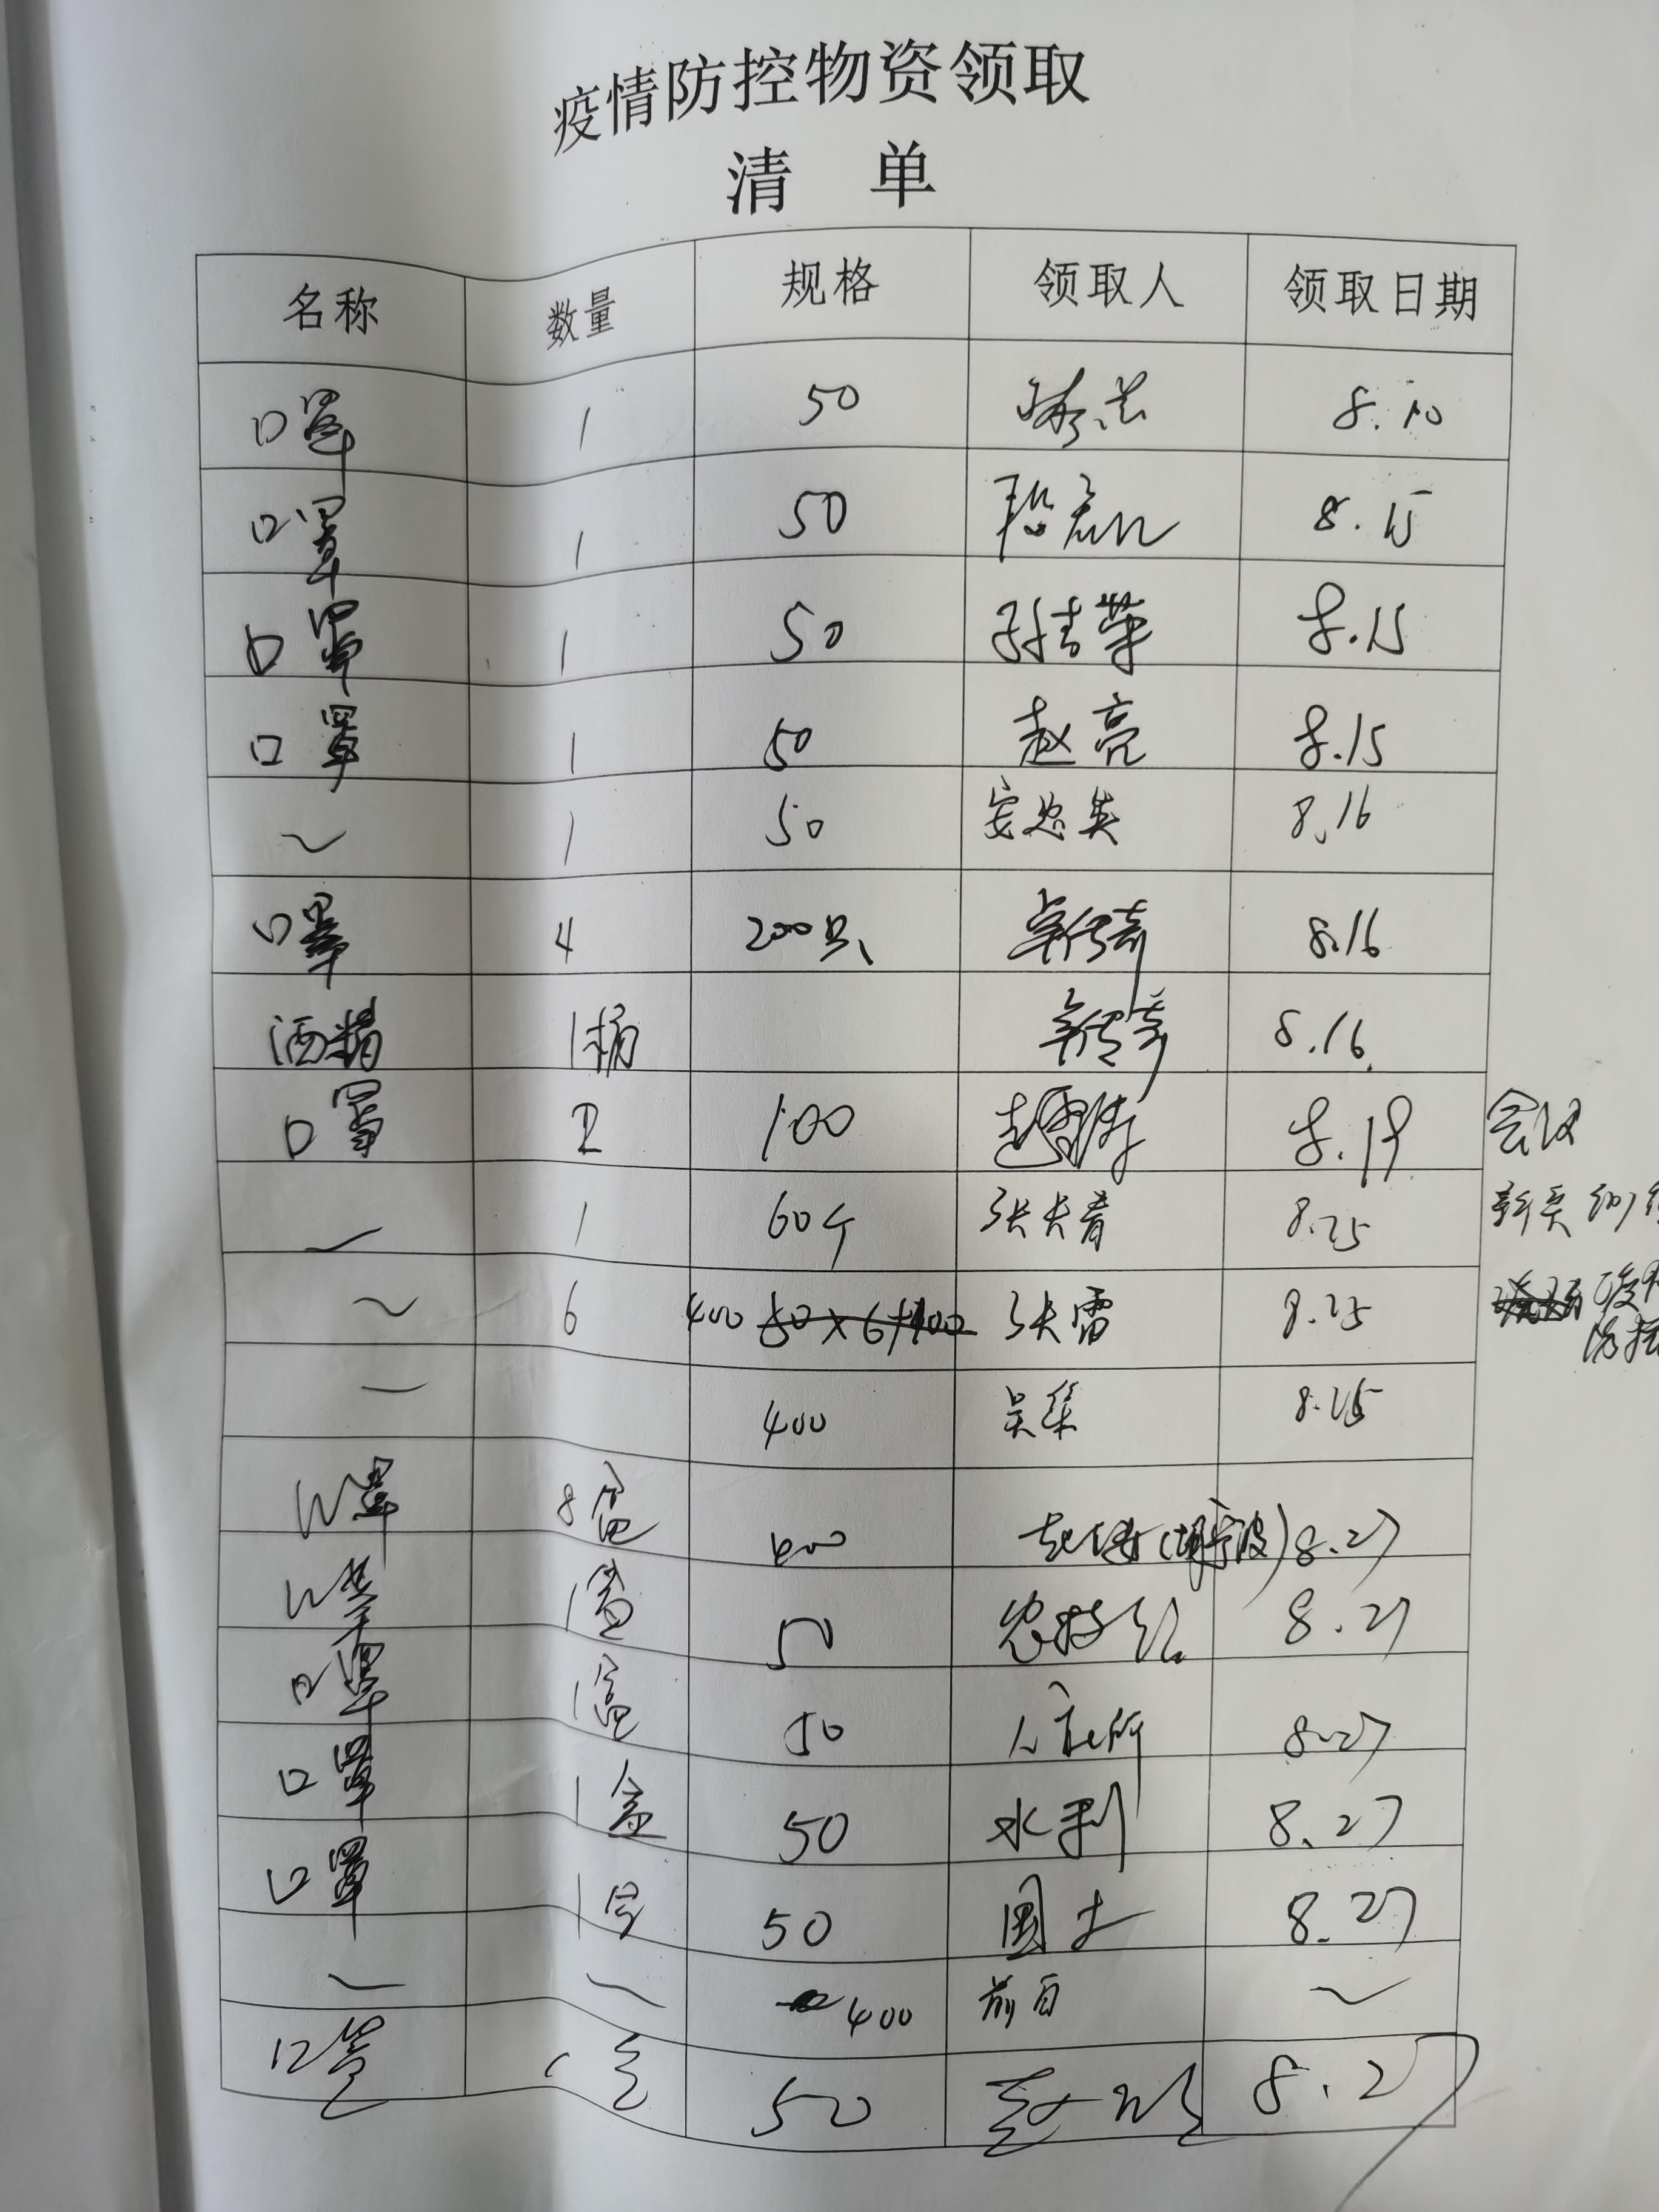 疫情防控物资领取
清 单
名称 数量 规格 领取人 领取日期
口罩 1 50 8.10
口罩 1 50 8.15
口罩 1 50 孙吉荣 8.15
口罩 1 50 赵亮 8.15
〜 1 50 安忠英 8.16
口罩 4 200只 8.16
酒精 1桶 8.16
口罩 2 100 8.19 会议
〜 1 60个 张长青 8.25
〜 6 400 50×6+100 张雷 8.25
— 400 吴华 8.25
口罩 8盒 400 (胡宁波) 8.27
口罩 1盒 50 8.27
口罩 1盒 50 8.27
口罩 1盒 50 水利 8.27
口罩 1盒 50 国土 8.27
〜 〜 400 前白 〜
口罩 1盒 50 8.27